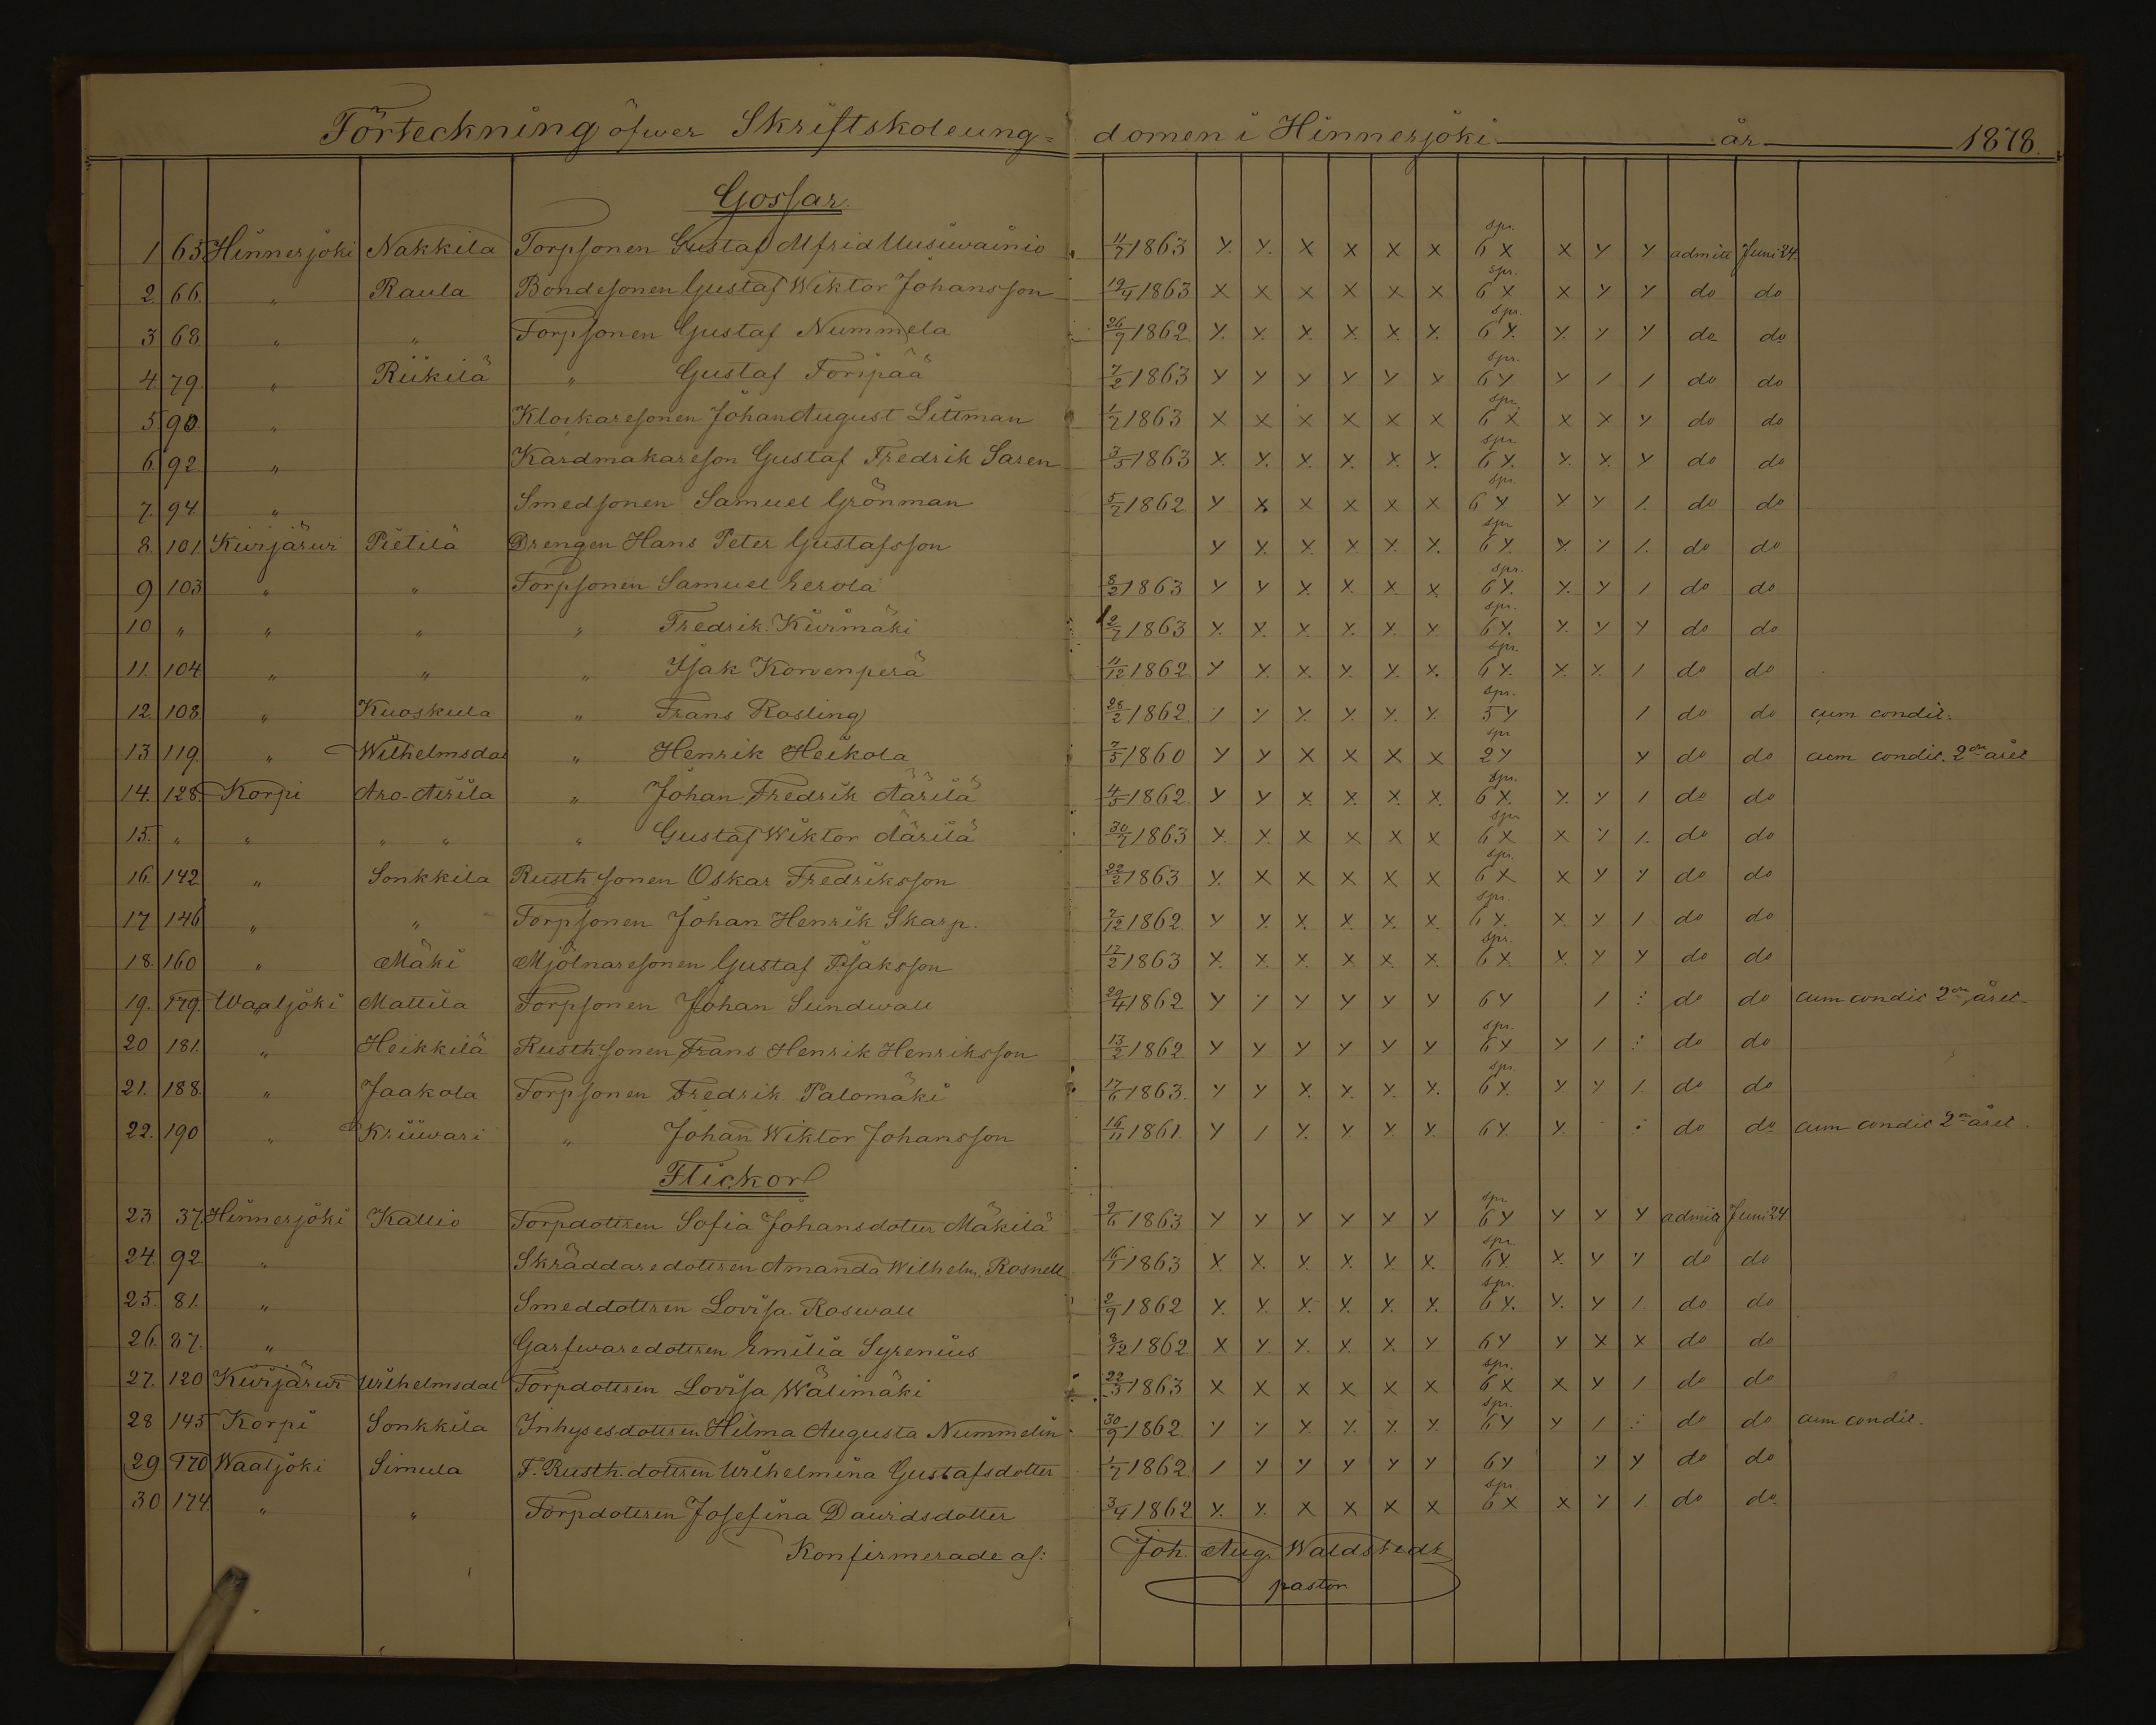 Förteckning öfwer Skriftskoleung= domen i Hinnerjoki år 1878.
Gossar.
1 65 Hinnerjoki Nakkila Torpsonen Gustaf Alfrid Uusiwainio 11/7 1863 Y. Y. X X X X spr. 6 X X Y Y admitt Juni 24
2. 66. " Raula Bondesonen Gustaf Wiktor Johansson 19/4 1863 X X X X X X spr. 6 X X Y Y do do
3 68. " " Torpsonen Gustaf Nummela 26/9 1862. Y. X. X. X. X. X. spr. 6 Y. Y. Y Y do do
4. 79. " Riikilä " Gustaf Toripää 7/2 1863 Y Y Y Y Y Y spr. 6 Y Y / / do do
5. 90. " Klockaresonen Johan August Littman 1/7 1863 X X X X X X spr. 6 X X X Y do do
6. 92. " Kardmakareson Gustaf Fredrik Saren 3/5 1863 X. X. X. X. X. X. spr. 6 Y. Y. Y. Y do do
7. 94. " Smedsonen Samuel Grönman 5/7 1862 Y X X X X X spr. 6 Y Y Y /. do do
8. 101. Kiwijärwi Pietilä Drengen Hans Peter Gustafsson Y Y. X. X. X. X. spr 6 Y. Y. Y /. do do
9 103 " " Torpsonen Samuel Eerola 8/2 1863 Y Y X X. X. X. spr. 6 Y. X. Y / do do
10 " " " " Fredrik Kiwimäki 1863 X. X. X. X. X. X. spr. 6 Y. Y. Y Y do do
11. 104. " " " Isak Korvenperä 11/12 1862 Y X. X. X. X. X. spr. 6 Y. X. X. / do do
12. 108. " Kuoskula " Frans Rosling 28/2 1862 / Y Y. Y. Y. Y. spr. 5 Y / do do cum condit.
13 119. " Wilhelmsdal " Henrik Heikola 7/5 1860 Y Y X X X X spr 2 Y Y do do cum condit. 2on året
14. 128. Korpi Aro-Äärilä " Johan Fredrik Äärilä 4/5 1862 Y Y X. X. X. X. spr. 6 X. Y. Y / do do
15. " " " " " Gustaf Wiktor Äärilä 30/7 1863 Y. X. X X X X spr 6 X X Y /. do do
16. 142 " Sonkkila Rusth.sonen Oskar Fredriksson 22/2 1863 Y. X X X X X spr. 6 X X Y Y do do
17 146 " " Torpsonen Johan Henrik Skarp. 7/12 1862. Y Y. X. X. X. X. spr. 6 X. X. Y / do do
18. 160 " Mäki Mjölnaresonen Gustaf Isaksson 12/2 1863 X. X. X. X X. X. spr. 6 X. X. Y Y do do
19. 179. Waaljoki Mattila Torpsonen Johan Sundwall 29/4 1862 Y Y Y Y Y Y 6 Y / : do do cum condit 2on året
20 181. " Heikkilä Rusth.sonen Frans Henrik Henriksson 13/2 1862 Y Y Y Y Y Y spr. 6 Y Y / : do do
21. 188. " Jaakola Torpsonen Fredrik Palomäki 17/6 1863. Y Y X. X. X. X. spr. 6 X. Y Y /. do do
22. 190 " Kriiwari " Johan Wiktor Johansson 16/11 1861. Y / Y. Y. Y. Y. 6 Y. Y. : do do cum condit 2on året.
Flickor
23 37. Hinnerjoki Kallio Torpdottren Sofia Johansdotter Mäkilä 2/6 1863 Y Y Y Y Y Y spr 6 Y Y Y Y admitt Juni 24
24. 92. " Skräddaredottren Amanda Wilhelm. Rosnell 16/1 1863 X. X. Y. X. X. X. spr. 6 X. X. Y Y do do
25. 81. " Smeddottren Lovisa Roswall 2/9 1862 Y. Y. Y. Y. Y. Y. spr. 6 Y. Y. Y /. do do
26. 87. " Garfwaredottren Emilia Syrenius 8/12 1862 X Y. Y. X. X. Y 6 Y Y X X do do
27. 120 Kiwijärwi Wilhelmsdal Torpdottren Lovisa Wälimäki 22/3 1863 X X X X X X spr. 6 X X Y / do do
28 145 Korpi Sonkkila Inhysesdottren Hilma Augusta Nummelin 30/9 1862. Y Y X. Y. Y. Y. spr. 6 Y Y / : do do cum condit.
29 170 Waaljoki Simula F. Rusth. dottren Wilhelmina Gustafsdotter 1/7 1862 / Y Y Y Y Y 6 Y Y Y do do
30 174. " " Torpdottren Josefina Dawidsdotter 3/4 1862 Y. Y. X X X X spr. 6 X X Y / do do
Konfirmerade af: Joh. Aug. Waldstedt
pastor